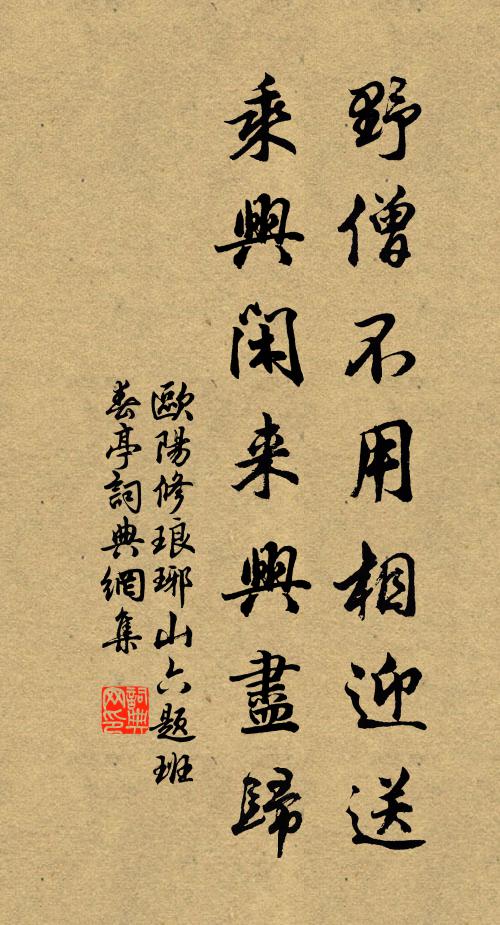 野僧不用相迎送
乘興閑来興盡歸
歐陽修琅琊山六題班
春亭詞典網集
詞典网印